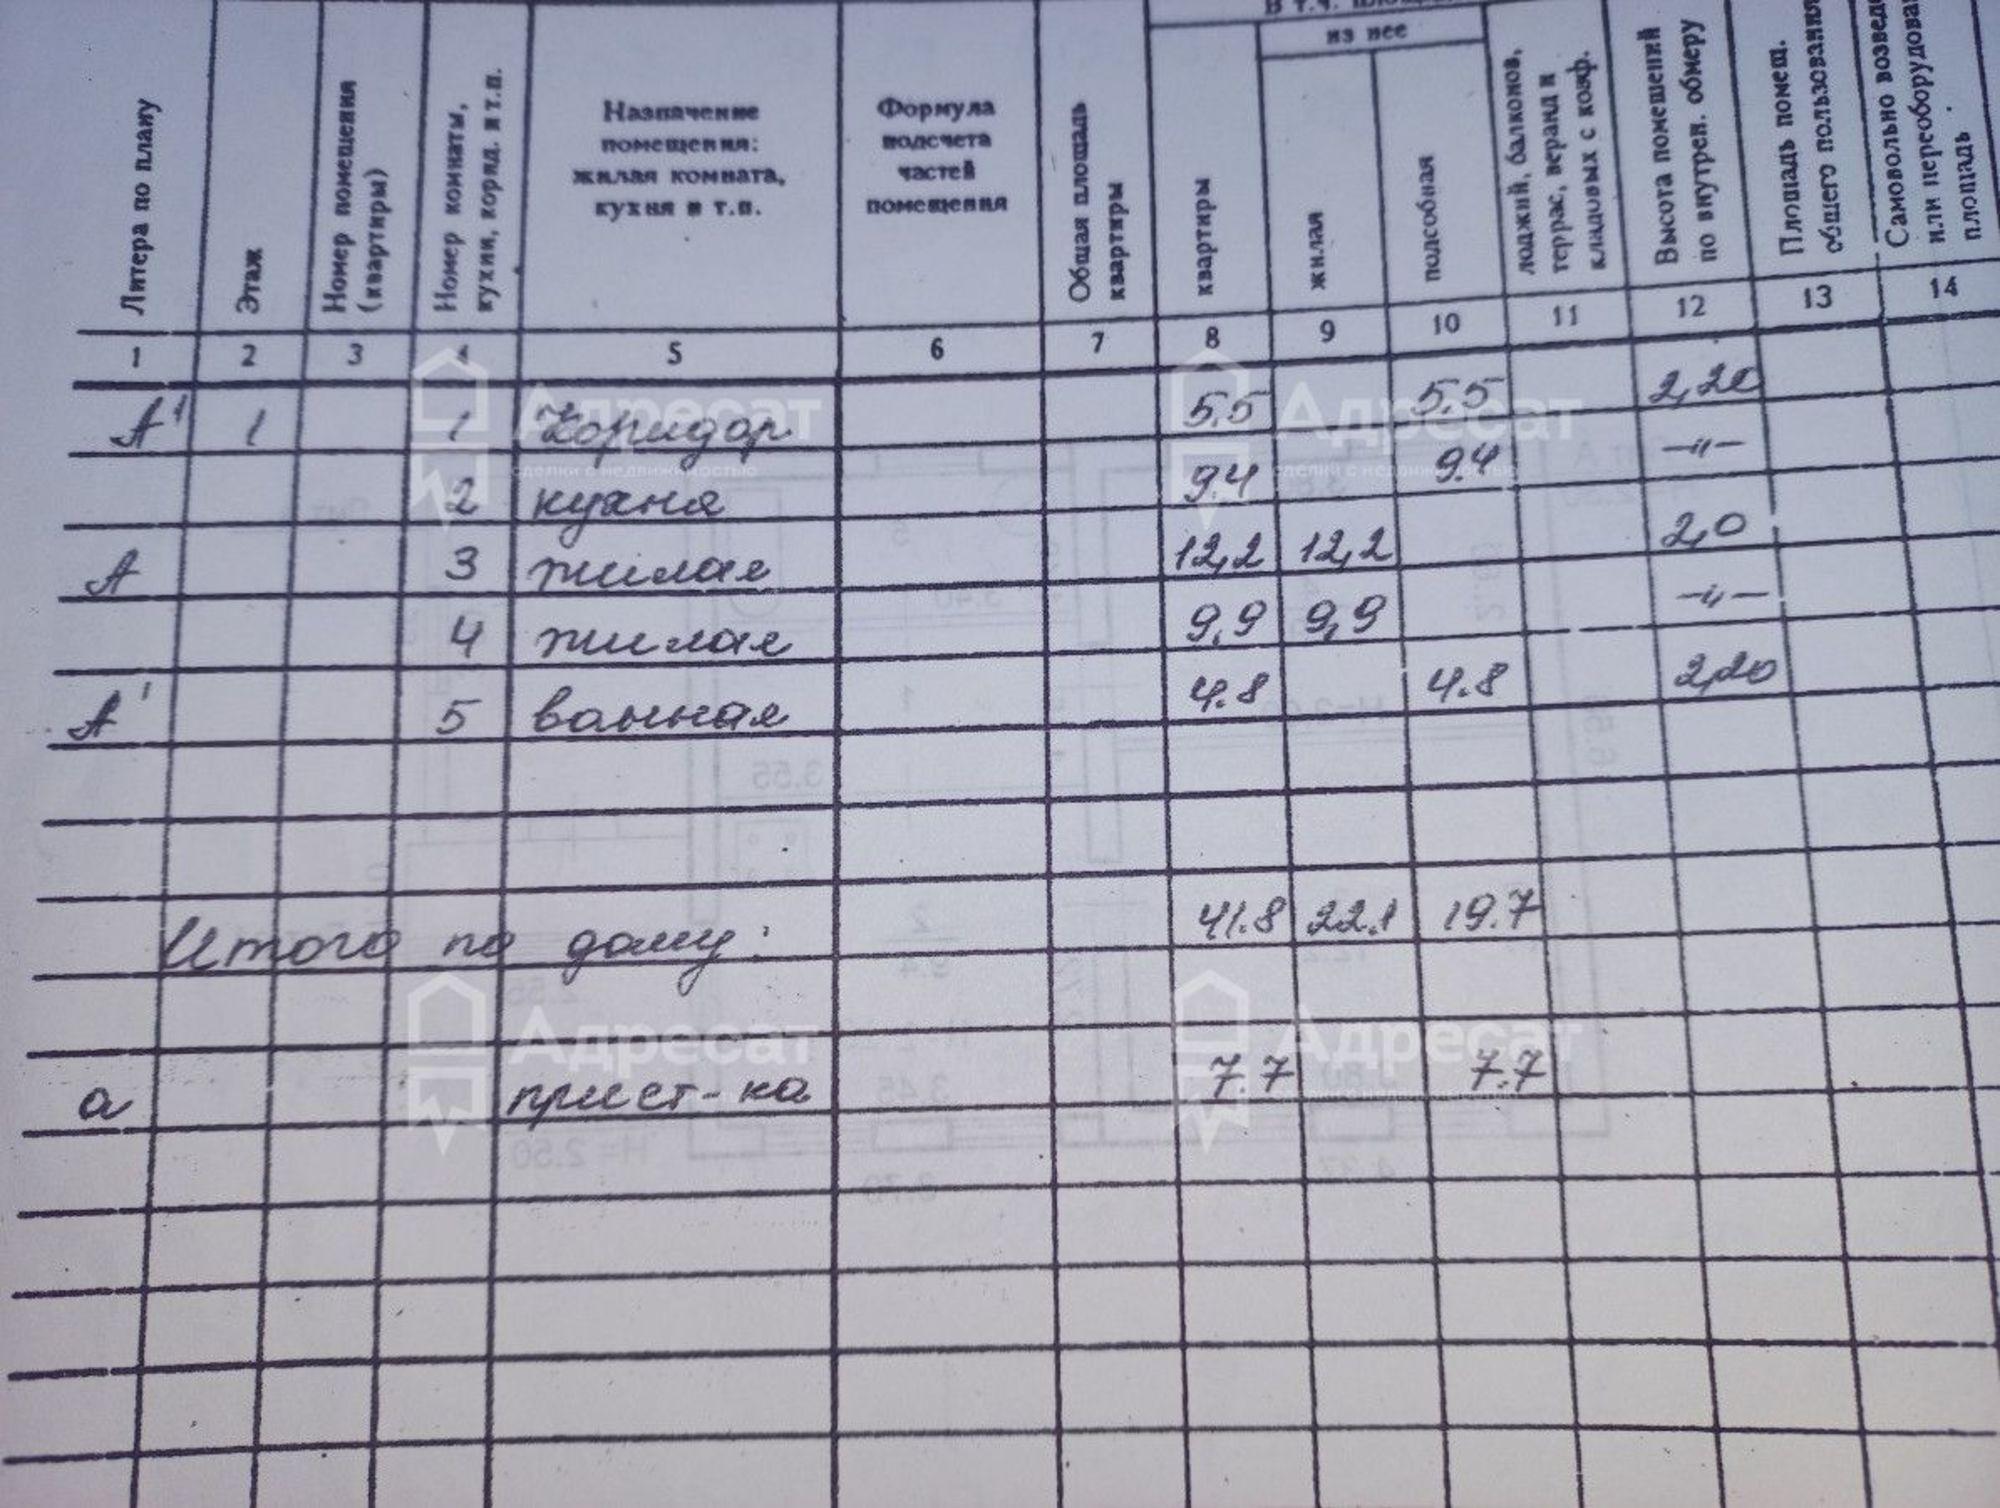 В т.ч.
из нее
Литера по плану
Этаж
Номер помещения
(квартиры)
Номер комнаты,
кухни, корид. и т.п.
Назначение
помещения:
жилая комната,
кухня и т.п.
Формула
подсчета
частей
помещения
Общая площадь
квартиры
квартиры
жилая
подсобная
лоджий, балконов,
террас, веранд и
кладовых с коэф.
Высота помещений
по внутрен. обмеру
Площадь помещ.
общего пользования
Самовольно
или переоборудован
площадь
1 2 3 4 5 6 7 8 9 10 11 12 13 14
А¹ 1 1 Коридор 5.5 5.5 2,20
2 кухня 9.4 9.4 —"—
А 3 жилая 12,2 12,2 2,0
4 жилая 9,9 9,9 —"—
А' 5 ванная 4.8 4.8 2,20
Итого по дому: 41.8 22.1 19.7
а прист-ка 7.7 7.7
Адресат
сделки с недвижимостью
Адресат
сделки с недвижимостью
Адресат
Адресат
3.55
3.40
2.55
3.45
H= 2.50
4.37